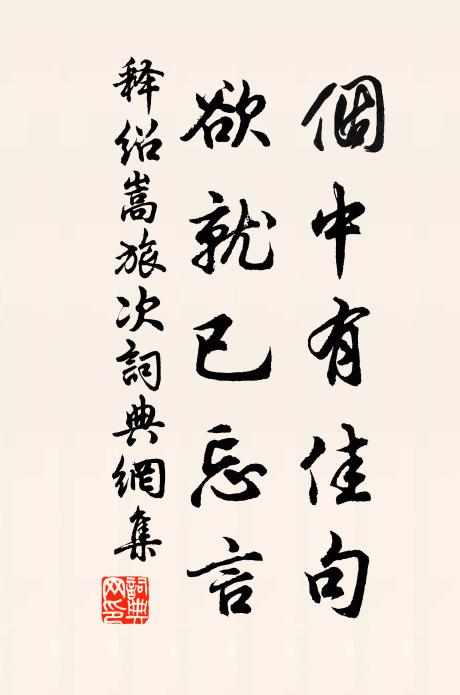 個中有佳句
欲就已忘言
释绍嵩旅次詞典網集
詞典網印